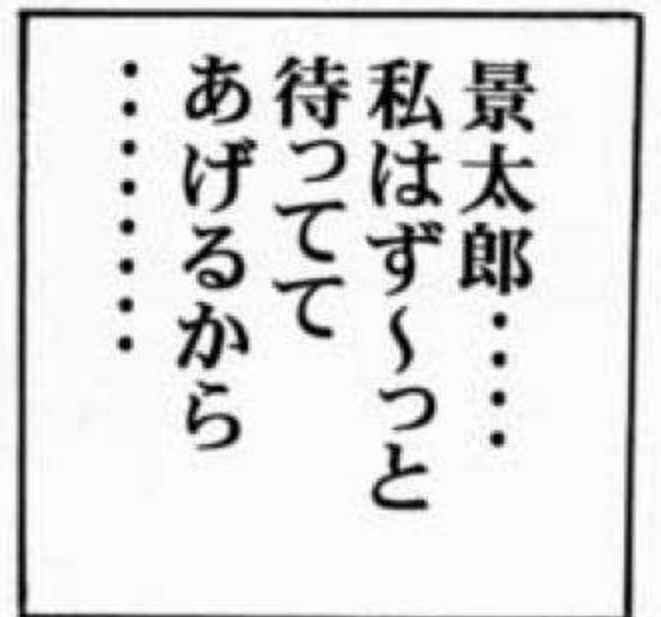 景太郎････
私はず～っと
待ってて
あげるから
････････